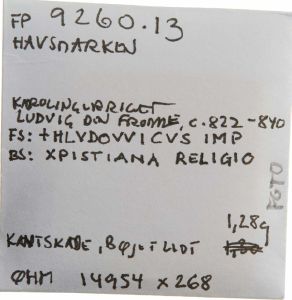 FP 9260.13
HAVSMARKEN
KAROLINGERRIGET
LUDVIG DEN FROMME, c.822-840
FS: +HLVDOVVICVS IMP
BS: XPISTIANA RELIGIO
FOTO
1,28g
KANTSKADE, BØJET LIDT 1,30
ØHM 14954 x 268